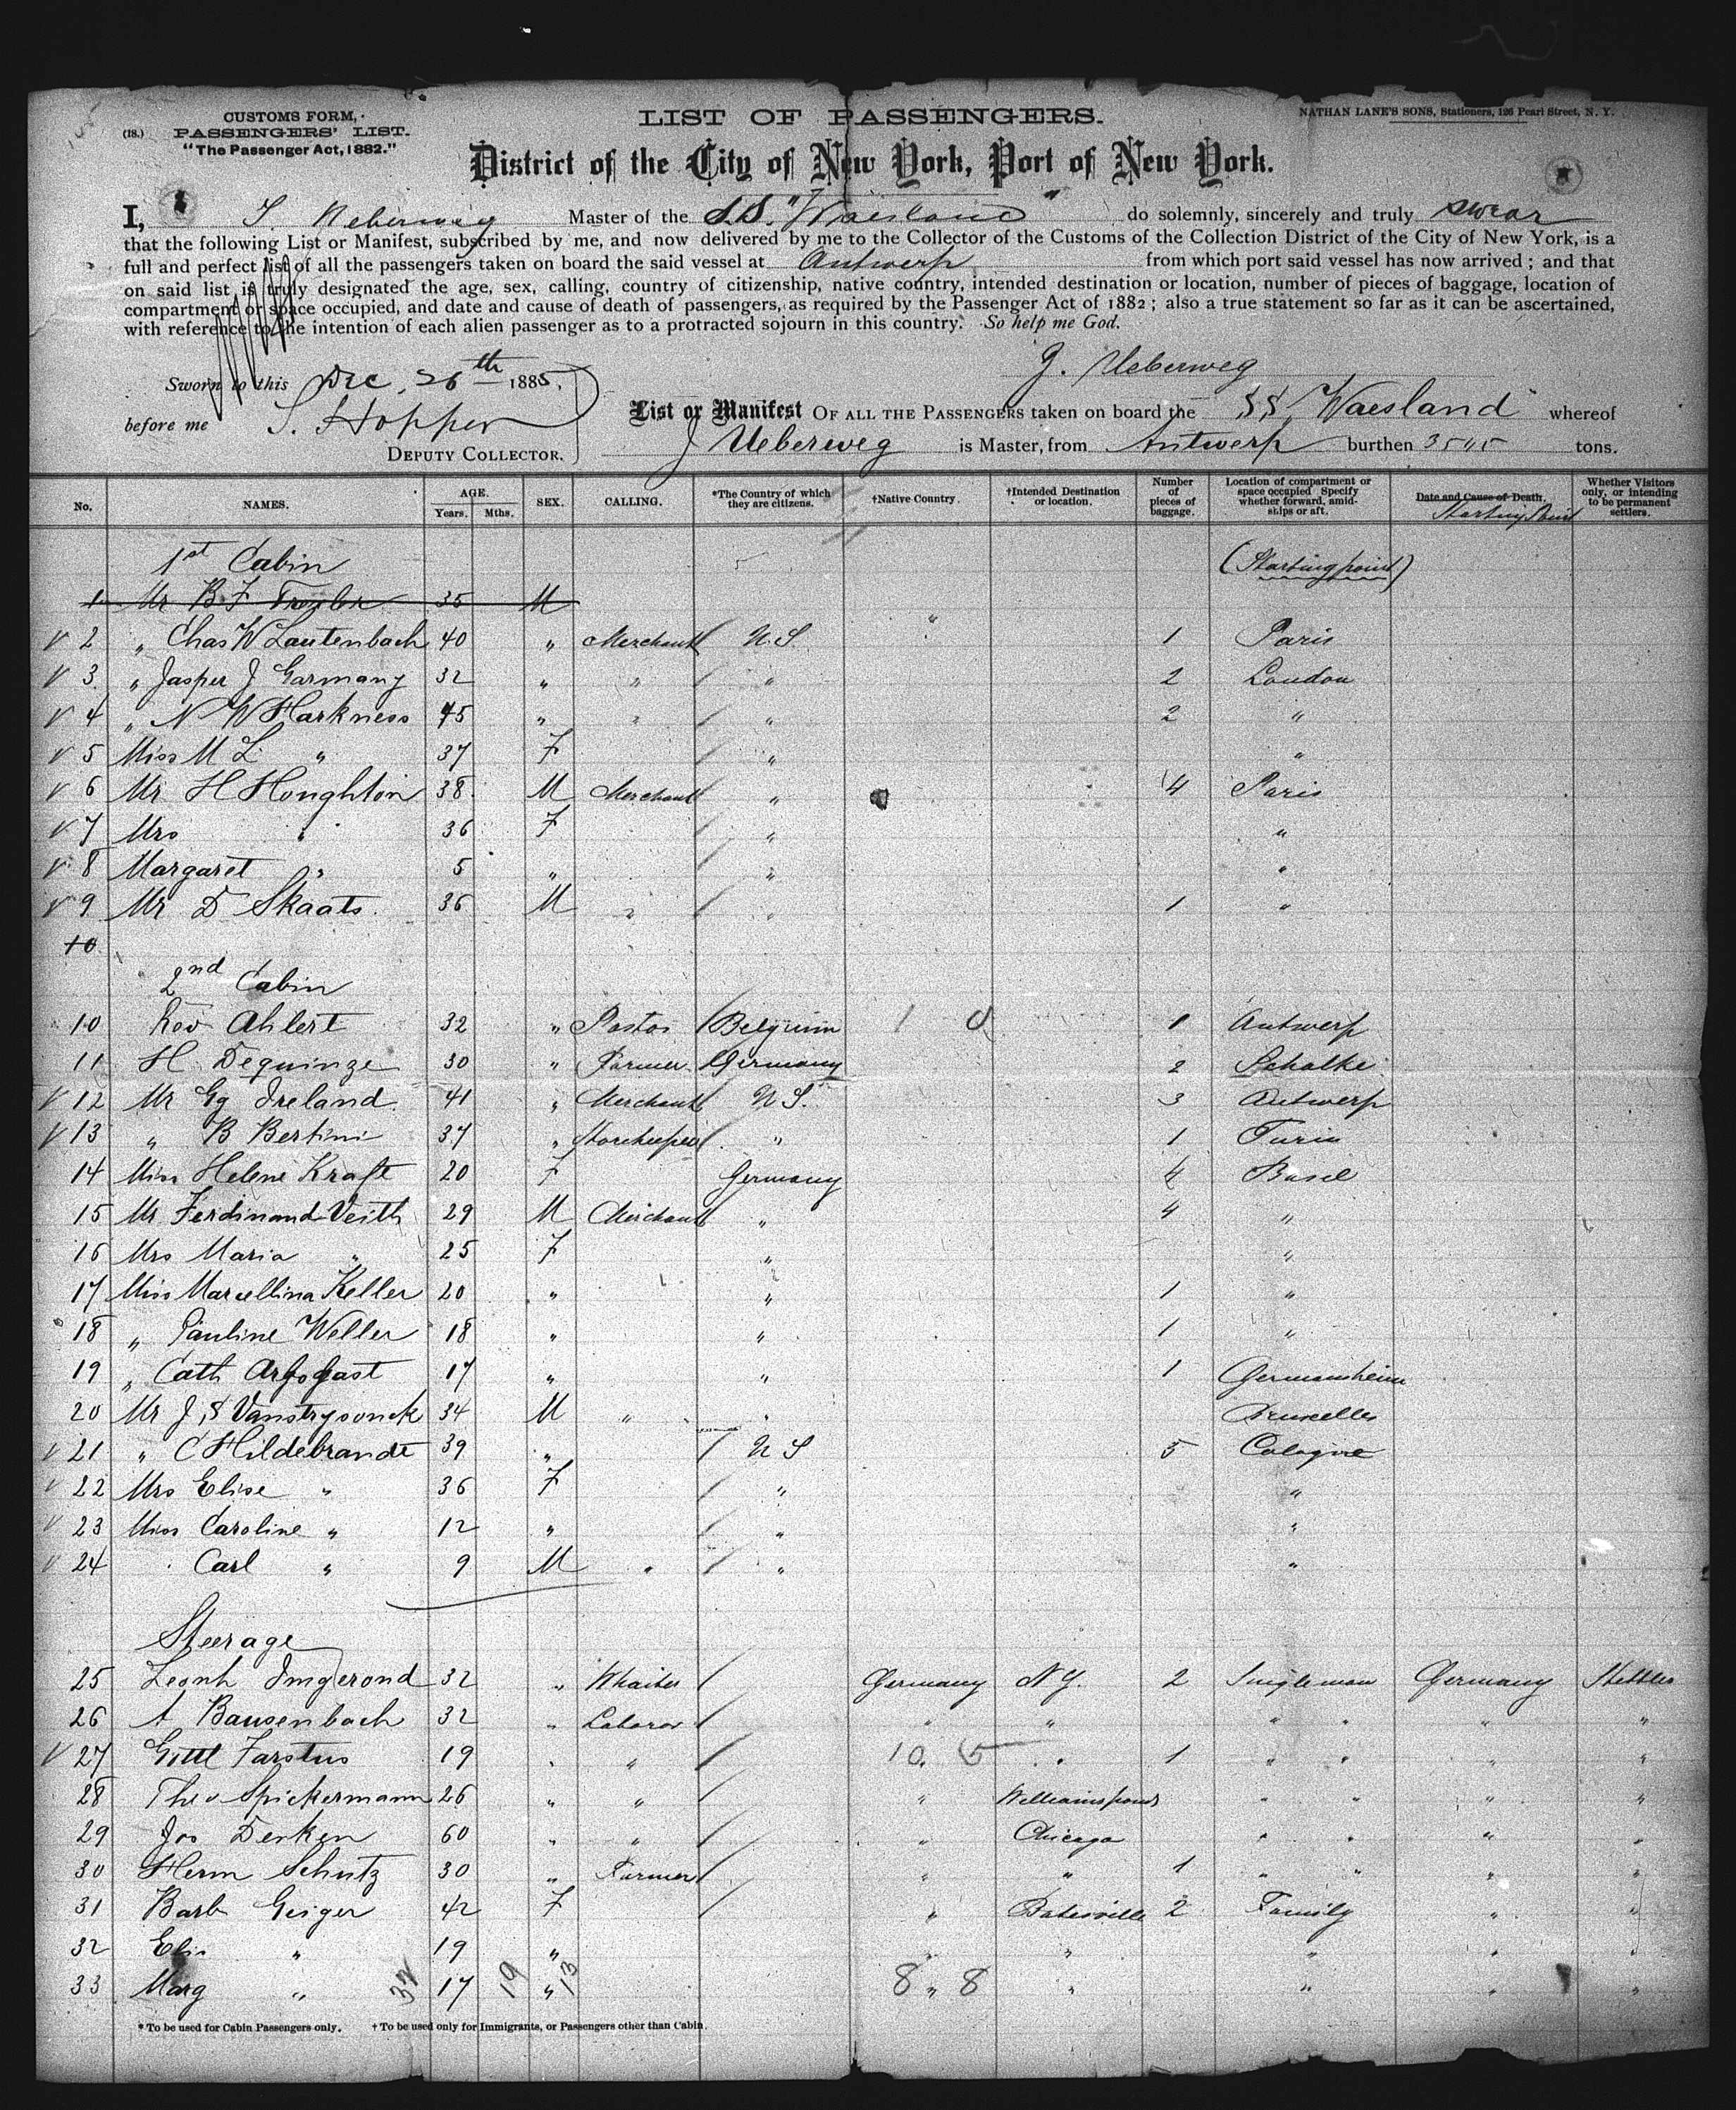 CUSTOMS FORM,
(18.) PASSENGERS' LIST.
"The Passenger Act, 1882."
LIST OF PASSENGERS.
NATHAN LANE'S SONS, Stationers, 126 Pearl Street, N. Y.
District of the City of New York, Port of New York.
I, J. Ueberweg Master of the S.S. "Waesland" do solemnly, sincerely and truly swear
that the following List or Manifest, subscribed by me, and now delivered by me to the Collector of the Customs of the Collection District of the City of New York, is a
full and perfect list of all the passengers taken on board the said vessel at Antwerp from which port said vessel has now arrived; and that
on said list is truly designated the age, sex, calling, country of citizenship, native country, intended destination or location, number of pieces of baggage, location of
compartment or space occupied, and date and cause of death of passengers, as required by the Passenger Act of 1882; also a true statement so far as it can be ascertained,
with reference to the intention of each alien passenger as to a protracted sojourn in this country. So help me God.
J. Ueberweg
Sworn to this Dec. 26th 1885,
before me S. Hopper
DEPUTY COLLECTOR.
List or Manifest OF ALL THE PASSENGERS taken on board the SS. Waesland whereof
J Ueberweg is Master, from Antwerp burthen tons.
No. NAMES. AGE. Years. Mths. SEX. CALLING. *The Country of which they are citizens. †Native Country. †Intended Destination or location. Number of pieces of baggage. Location of compartment or space occupied Specify whether forward, amidships or aft. Date and Cause of Death. Starting Point Whether Visitors only, or intending to be permanent settlers.
1st Cabin (Starting point)
1 Mr B F 35 M
2 " Chas W Lautenbach 40 " Merchant U.S. 1 Paris
3 " Jasper J Garmany 32 " " " 2 London
4 " N W Harkness 45 " " " 2 "
5 Miss M L " 37 F " "
6 Mr H Houghton 38 M Merchant " 4 Paris
7 Mrs " 36 F " "
8 Margaret " 5 " " "
9 Mr D Skaats 36 M " " 1 "
10
2nd Cabin
10 Rev Ahlert 32 " Pastor Belgium 1 Antwerp
11 H Dequinze 30 " Farmer Germany 2 Schalke
12 Mr Gg Ireland 41 " Merchant U S. 3 Antwerp
13 " B Bertini 37 " Storekeeper " 1 Turin
14 Miss Helene Kraft 20 F Germany 4 Basel
15 Mr Ferdinand Veith 29 M Merchant " 4 "
16 Mrs Maria " 25 F " "
17 Miss Marcellina Keller 20 " " 1 "
18 " Pauline Weller 18 " " 1 "
19 " Cath Arbogast 17 " " 1 Germersheim
20 Mr J S 34 M " " Bruxelles
21 " C Hildebrandt 39 " U S 5 Cologne
22 Mrs Elise " 36 F " "
23 Miss Caroline " 12 " " "
24 Carl " 9 M " " "
Steerage
25 Leonh 32 " Germany N Y. 2 Singlemen Germany Settler
26 A Bausenbach 32 " Laborer " " " " " "
27 19 " " 10. 5 " 1 " " " "
28 Theo Spickermann 26 " " " " " " "
29 Jos Derken 60 " " " Chicago " " " "
30 Herm Schutz 30 " Farmer " " 1 " " " "
31 Barb Geiger 42 F " Batesville 2 Family " "
32 Elis " 19 " " " " " "
33 Marg " 17 " 8 " 8 " " " "
* To be used for Cabin Passengers only. † To be used only for Immigrants, or Passengers other than Cabin.